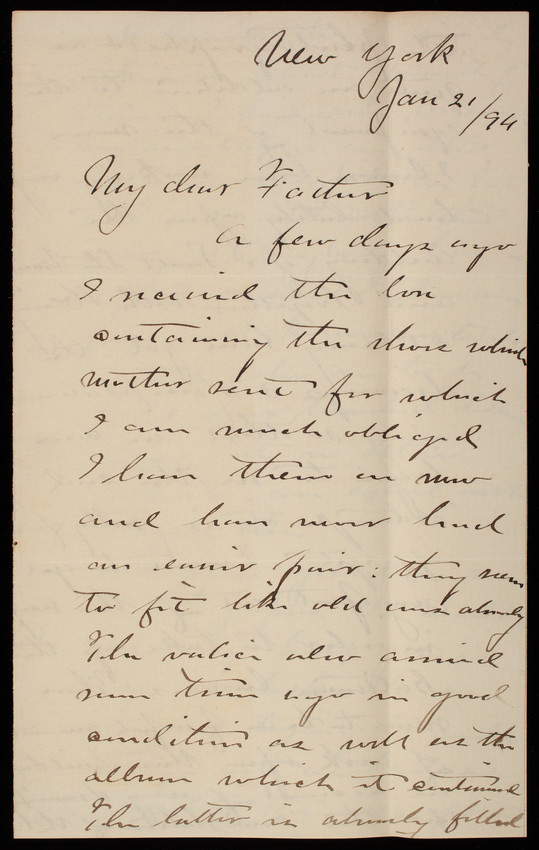 New York
Jan 21/94
My dear Father
A few days ago
I received the box
containing the shoes which
mother sent for which
I am much obliged
I have them on now
and have never had
an easier pair: they seem
to fit like old ones already
The valise also arrived
some time ago in good
condition as well as the
album which it contained
The latter is already filled